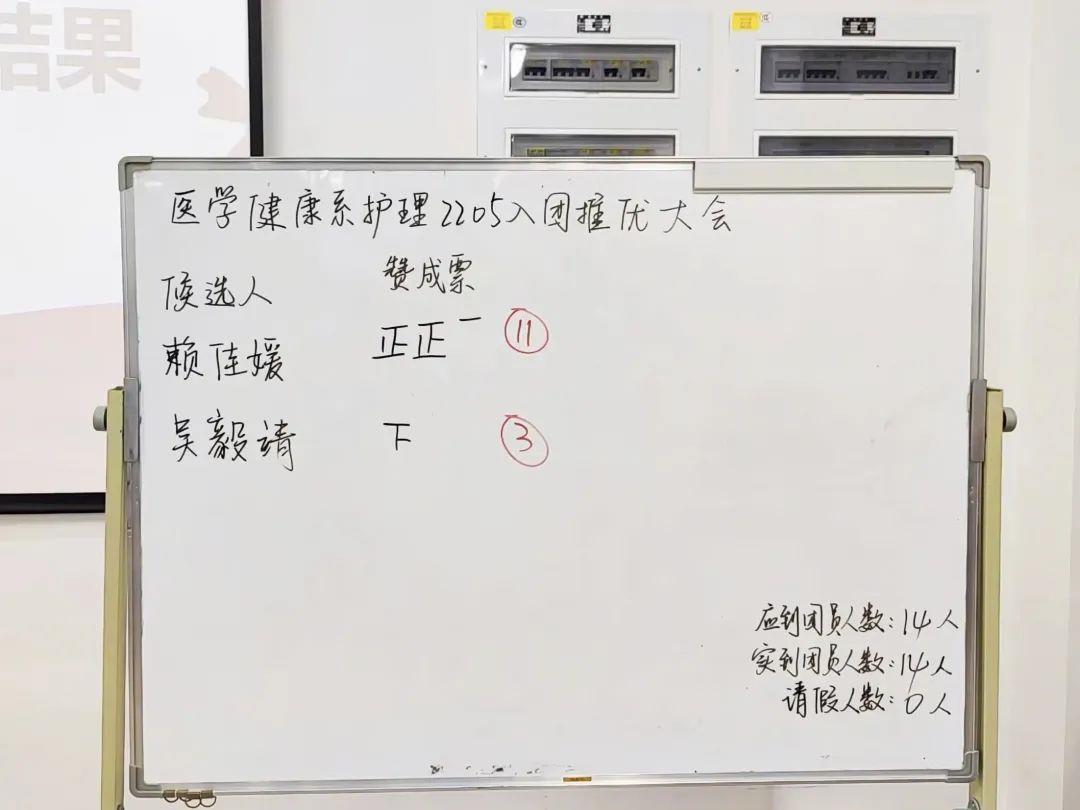 结果
医学健康系护理2205入团推优大会
候选人 赞成票
赖佳媛 正正一 11
吴毅靖 下 3
应到团员人数:14人
实到团员人数:14人
请假人数:0人